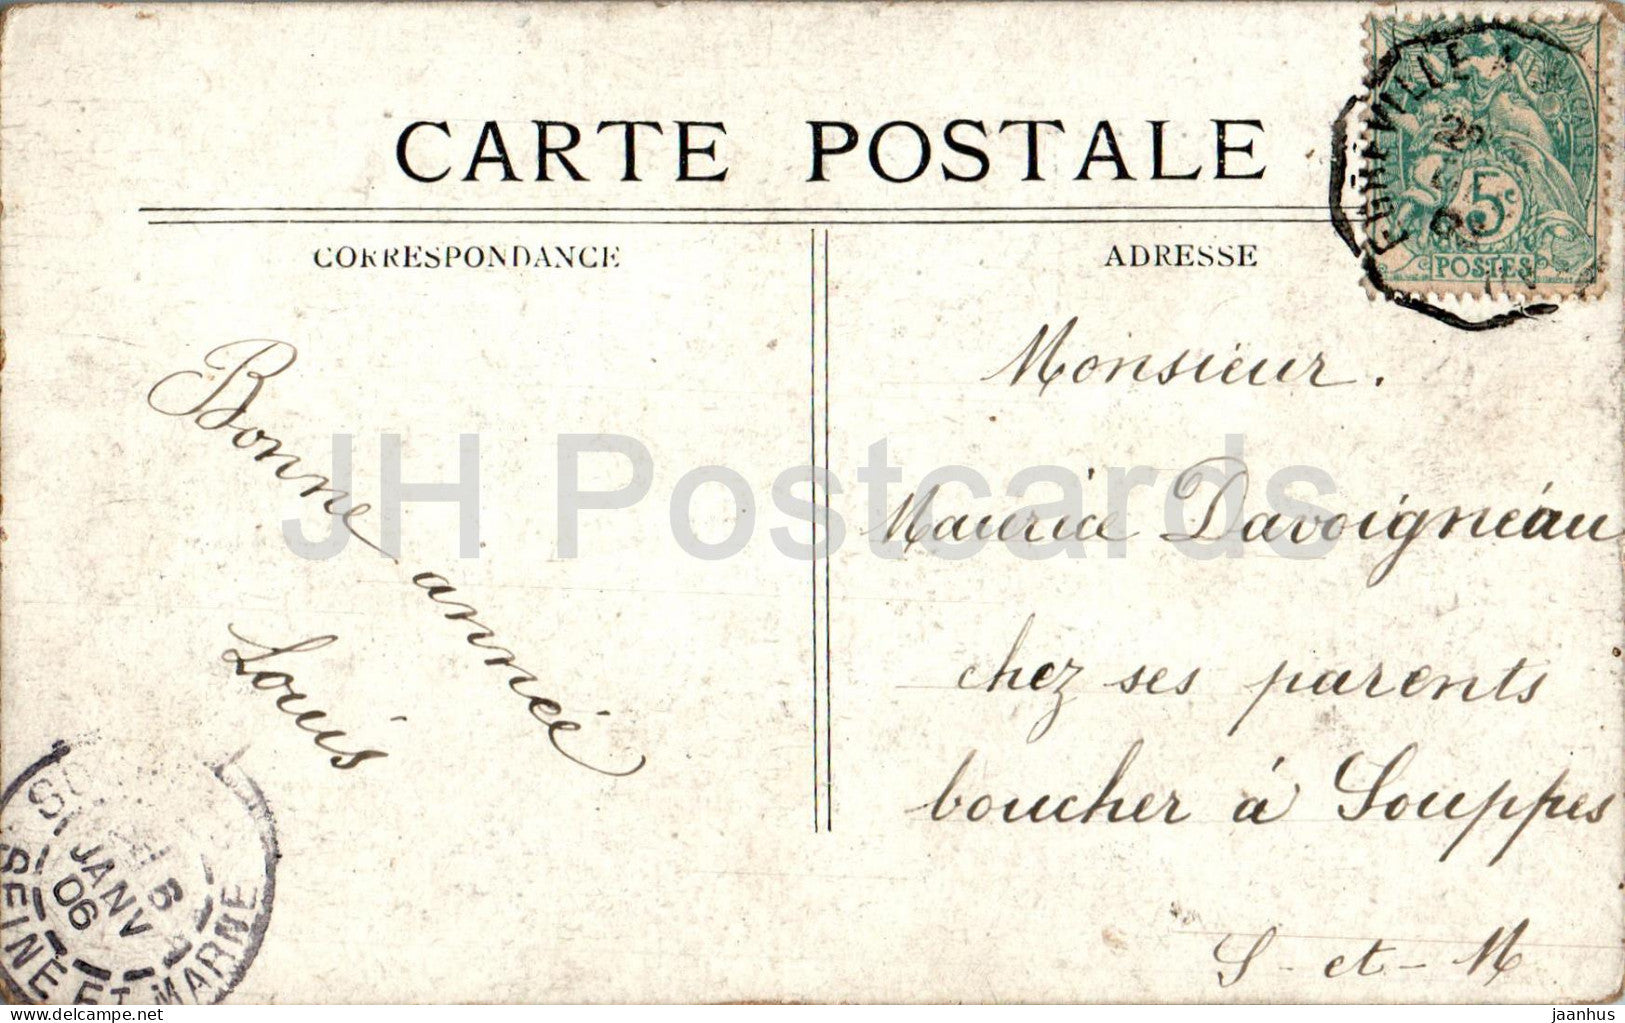 CARTE POSTALE
CORRESPONDANCE
ADRESSE
5c
POSTES
Bonne année
Louis
Monsieur.
Maurice Davoigneau
chez ses parents
boucher à Souppes
S-et-M
JANV
06
SEINE ET MARNE
JH Postcards
delcampe.net
jaanhus